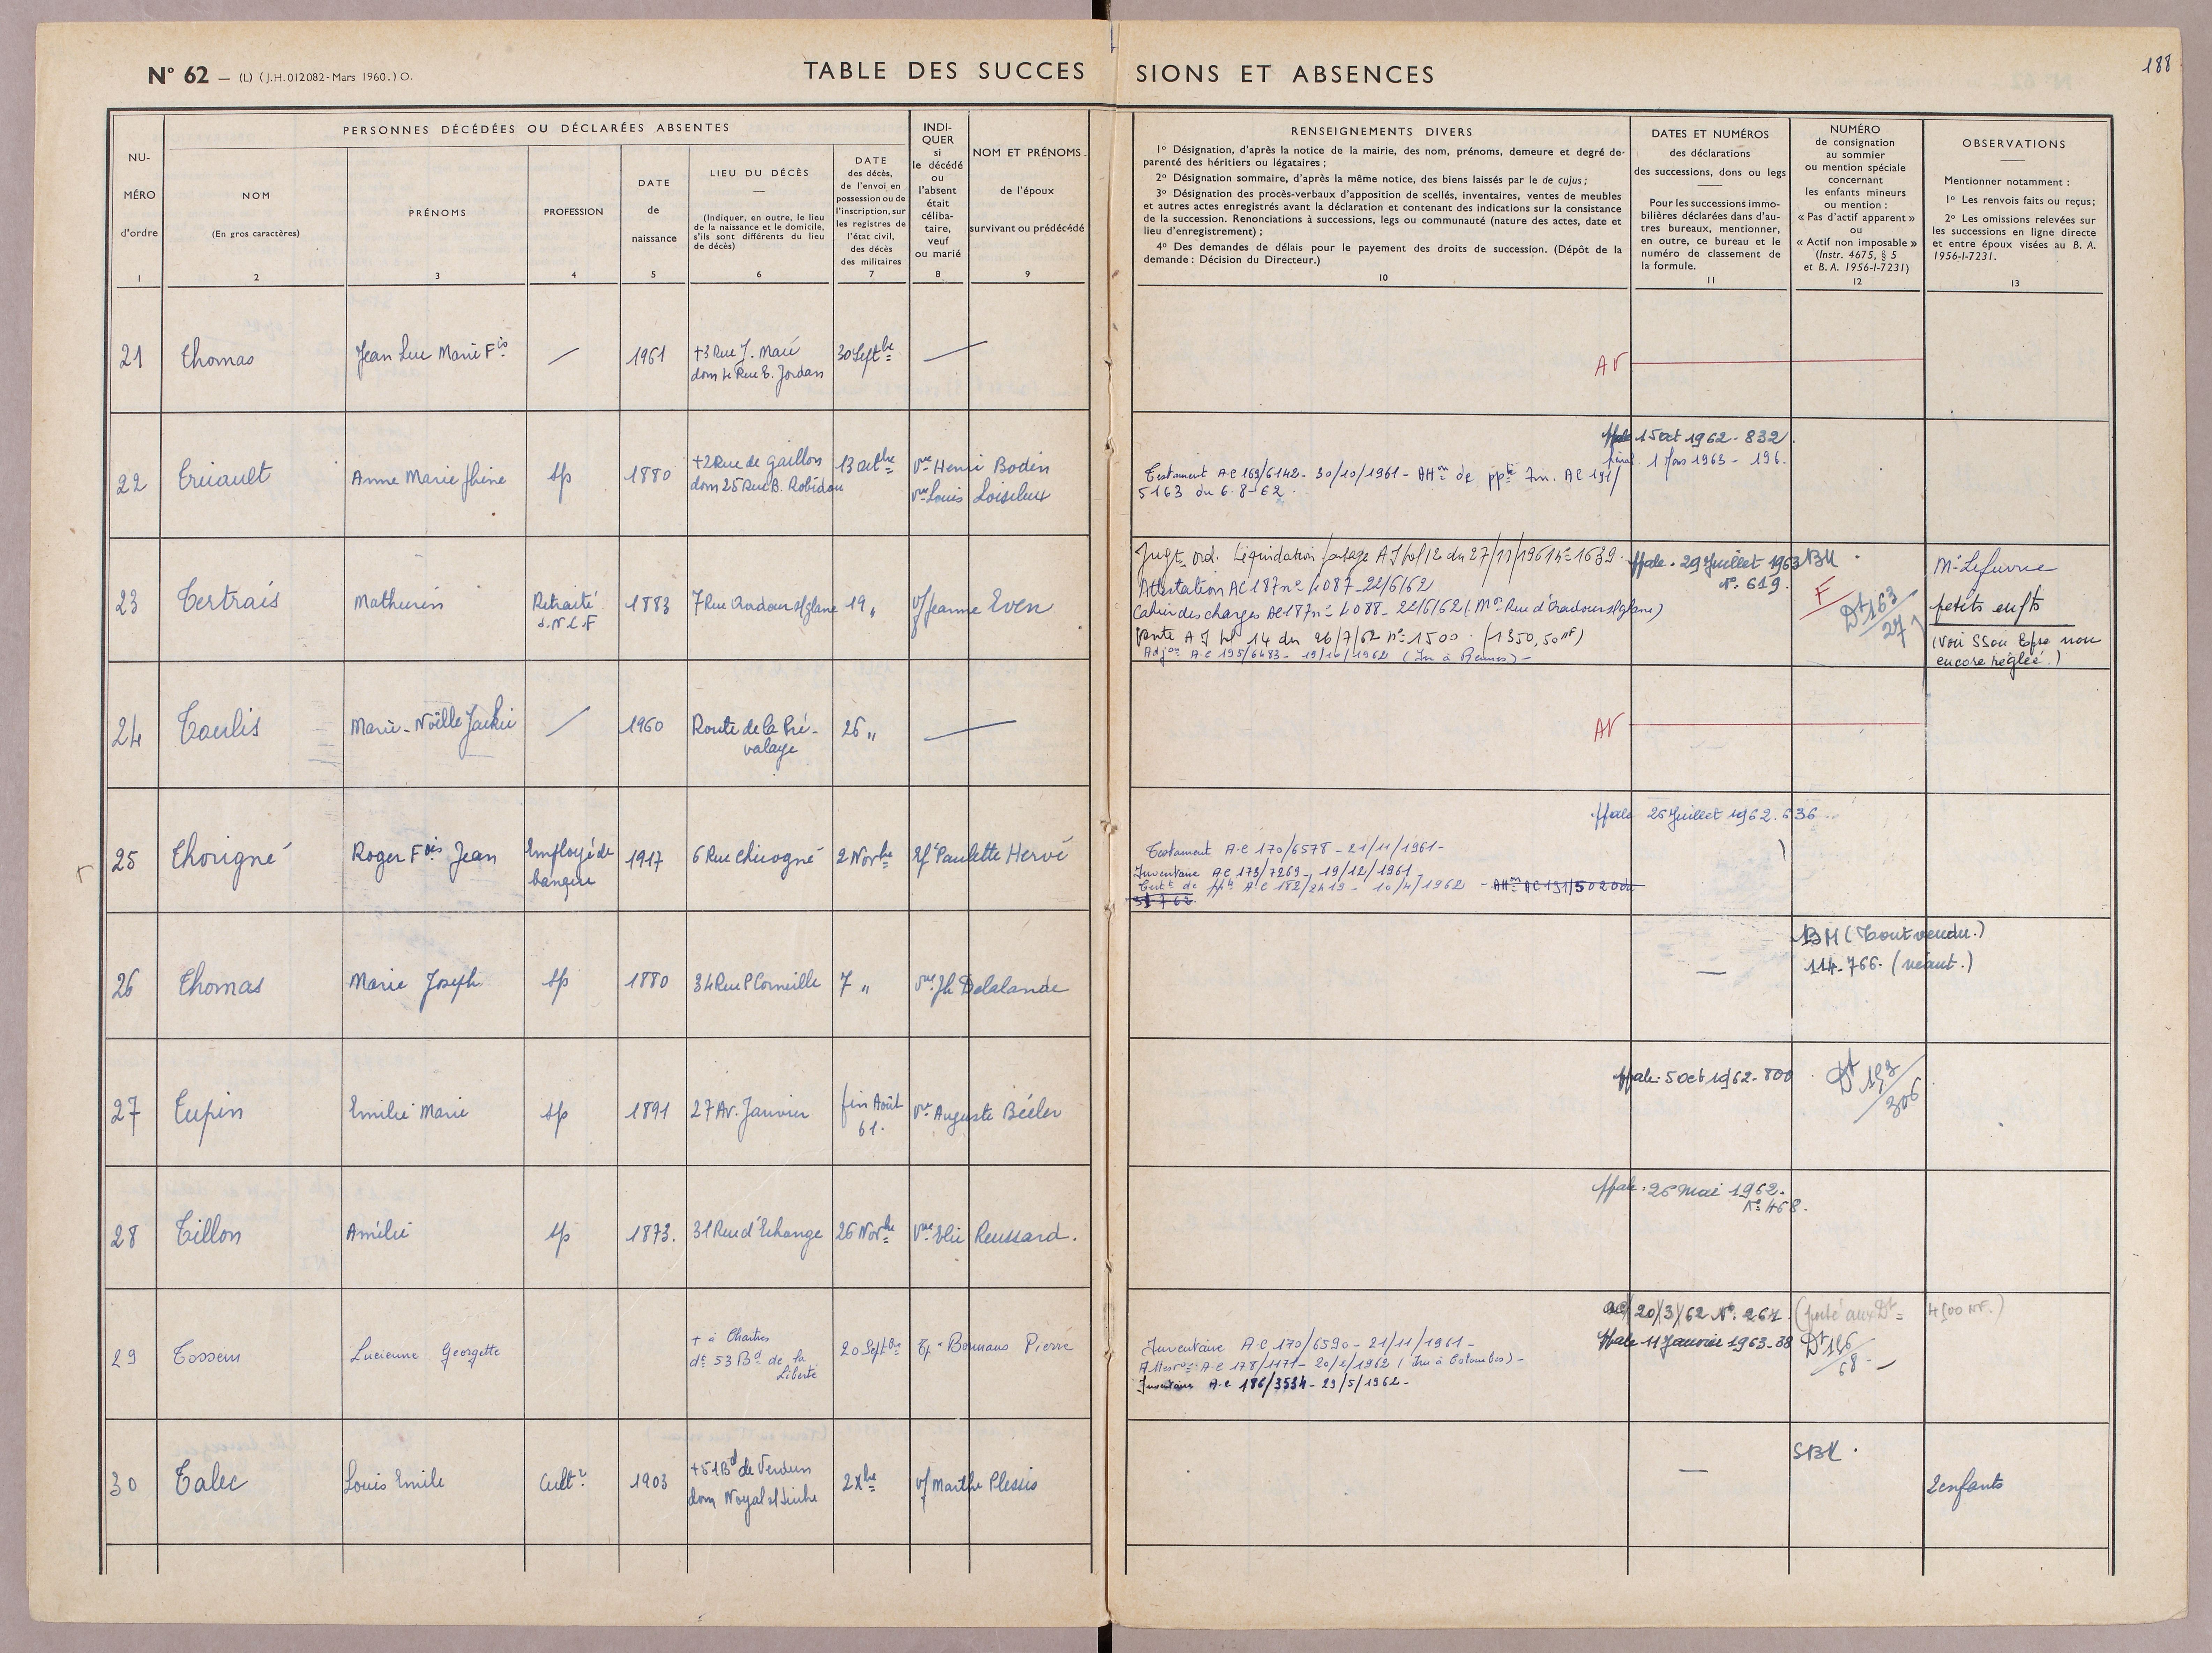 N° 62 — (L) (J.H. 012082 - Mars 1960.) O.
TABLE DES SUCCESSIONS ET ABSENCES
188
NU-
MÉRO
d'ordre
1
PERSONNES DÉCÉDÉES OU DÉCLARÉES ABSENTES
NOM
(En gros caractères)
2
PRÉNOMS
3
PROFESSION
4
DATE
de
naissance
5
LIEU DU DÉCÈS
—
(Indiquer, en outre, le lieu
de la naissance et le domicile,
s'ils sont différents du lieu
de décès)
6
DATE
des décès,
de l'envoi en
possession ou de
l'inscription, sur
les registres de
l'état civil,
des décès
des militaires
7
INDI-
QUER
si
le décédé
ou
l'absent
était
céliba-
taire,
veuf
ou marié
8
NOM ET PRÉNOMS
de l'époux
survivant ou prédécédé
9
RENSEIGNEMENTS DIVERS
1° Désignation, d'après la notice de la mairie, des nom, prénoms, demeure et degré de-
parenté des héritiers ou légataires ;
2° Désignation sommaire, d'après la même notice, des biens laissés par le de cujus ;
3° Désignation des procès-verbaux d'apposition de scellés, inventaires, ventes de meubles
et autres actes enregistrés avant la déclaration et contenant des indications sur la consistance
de la succession. Renonciations à successions, legs ou communauté (nature des actes, date et
lieu d'enregistrement) ;
4° Des demandes de délais pour le payement des droits de succession. (Dépôt de la
demande : Décision du Directeur.)
10
DATES ET NUMÉROS
des déclarations
des successions, dons ou legs
Pour les successions immo-
bilières déclarées dans d'au-
tres bureaux, mentionner,
en outre, ce bureau et le
numéro de classement de
la formule.
11
NUMÉRO
de consignation
au sommier
ou mention spéciale
concernant
les enfants mineurs
ou mention :
« Pas d'actif apparent »
ou
« Actif non imposable »
(Instr. 4675, § 5
et B. A. 1956-I-7231)
12
OBSERVATIONS
Mentionner notamment :
1° Les renvois faits ou reçus ;
2° Les omissions relevées sur
les successions en ligne directe
et entre époux visées au B. A.
1956-I-7231.
13
21 Thomas Jean Luc Marie Fis — 1961 +3 Rue J. Macé 30 Septbre —
dom 4 Rue E. Jordan
AV
22 Triault Anne Marie Jhine sp 1880 +2 Rue de Gaillon 13 octbre Vve Henri Bodin
dom 25 Rue B. Robidou Vve Louis Loiseleux
Testament AC 169/6142 - 30/10/1961 - AHon de ppté Im. AC 191/
5163 du 6-8-62.
15 oct 1962 - 832.
1 Mars 1963 - 196.
23 Tertrais Mathurin Retraité S.N.C.F 1883 7 Rue Oradour s/glane 19 " Vf Jeanne Even
Jugt ord. Liquidation partage AJ vol 12 du 27/11/1961 n° 1639.
Attestation AC 187 n° 4087 - 22/6/62
Cahier des charges AC 187 n° 4088 - 22/6/62 (Mon Rue d'Oradour s/glane)
Vente AJ vol 14 du 26/7/62 n° 1500. (1350,50 NF)
Adjon AC 195/6483 - 19/10/1962 (Im à Rennes) -
ppale. 29 Juillet 1963
N° 619.
BM
F
Dt 163
27
Me Lefeuvre
petits enfts
(Voir SSon Epse non
encore réglée.)
24 Taulis Marie-Noëlle Jackie — 1960 Route de la Pré-
valaye 26 " —
AV
25 Thorigné Roger Fois Jean Employé de
banque 1917 6 Rue Chicogné 2 Novbre Ep Paulette Hervé
Testament AC 170/6578 - 21/11/1961 -
Inventaire AC 173/7269 - 19/12/1961
Certt de ppté AC 182/2419 - 10/4/1962 - AHon AC 191/5020 du
31-7-62
ppale 26 Juillet 1962. 636
26 Thomas Marie Joseph sp 1880 34 Rue P Corneille 7 " Vve Jh Delalande
—
BM (Tout vendu.)
114.766. (néant.)
27 Tupin Emilie Marie sp 1891 27 Av. Janvier fin Août
61. Vve Auguste Béeler
ppale. 5 oct 1962 - 800
Dt 193
306
28 Tillon Amélie sp 1873. 31 Rue d'Echange 26 Novbre Vve Elie Reussard.
ppale. 26 Mai 1962.
N° 468.
29 Tossen Lucienne Georgette + à Chartres
dt 53 Bd de la
Liberté 20 Septbre Ep Bonnans Pierre
Inventaire AC 170/6590 - 21/11/1961 -
Atteson AC 178/1171 - 20/2/1962 (Im à Colombes) -
Inventaire AC 186/3534 - 29/5/1962 -
20/3/62 N° 261
ppale 11 Janvier 1963 - 38
Dt 146
68 -
4500 NF.)
30 Talec Louis Emile Cultr 1903 +51 Bd de Verdun
dom Noyal s/ Seiche 2 Xbre Vf Marthe Plessis
—
SBM.
2 enfants